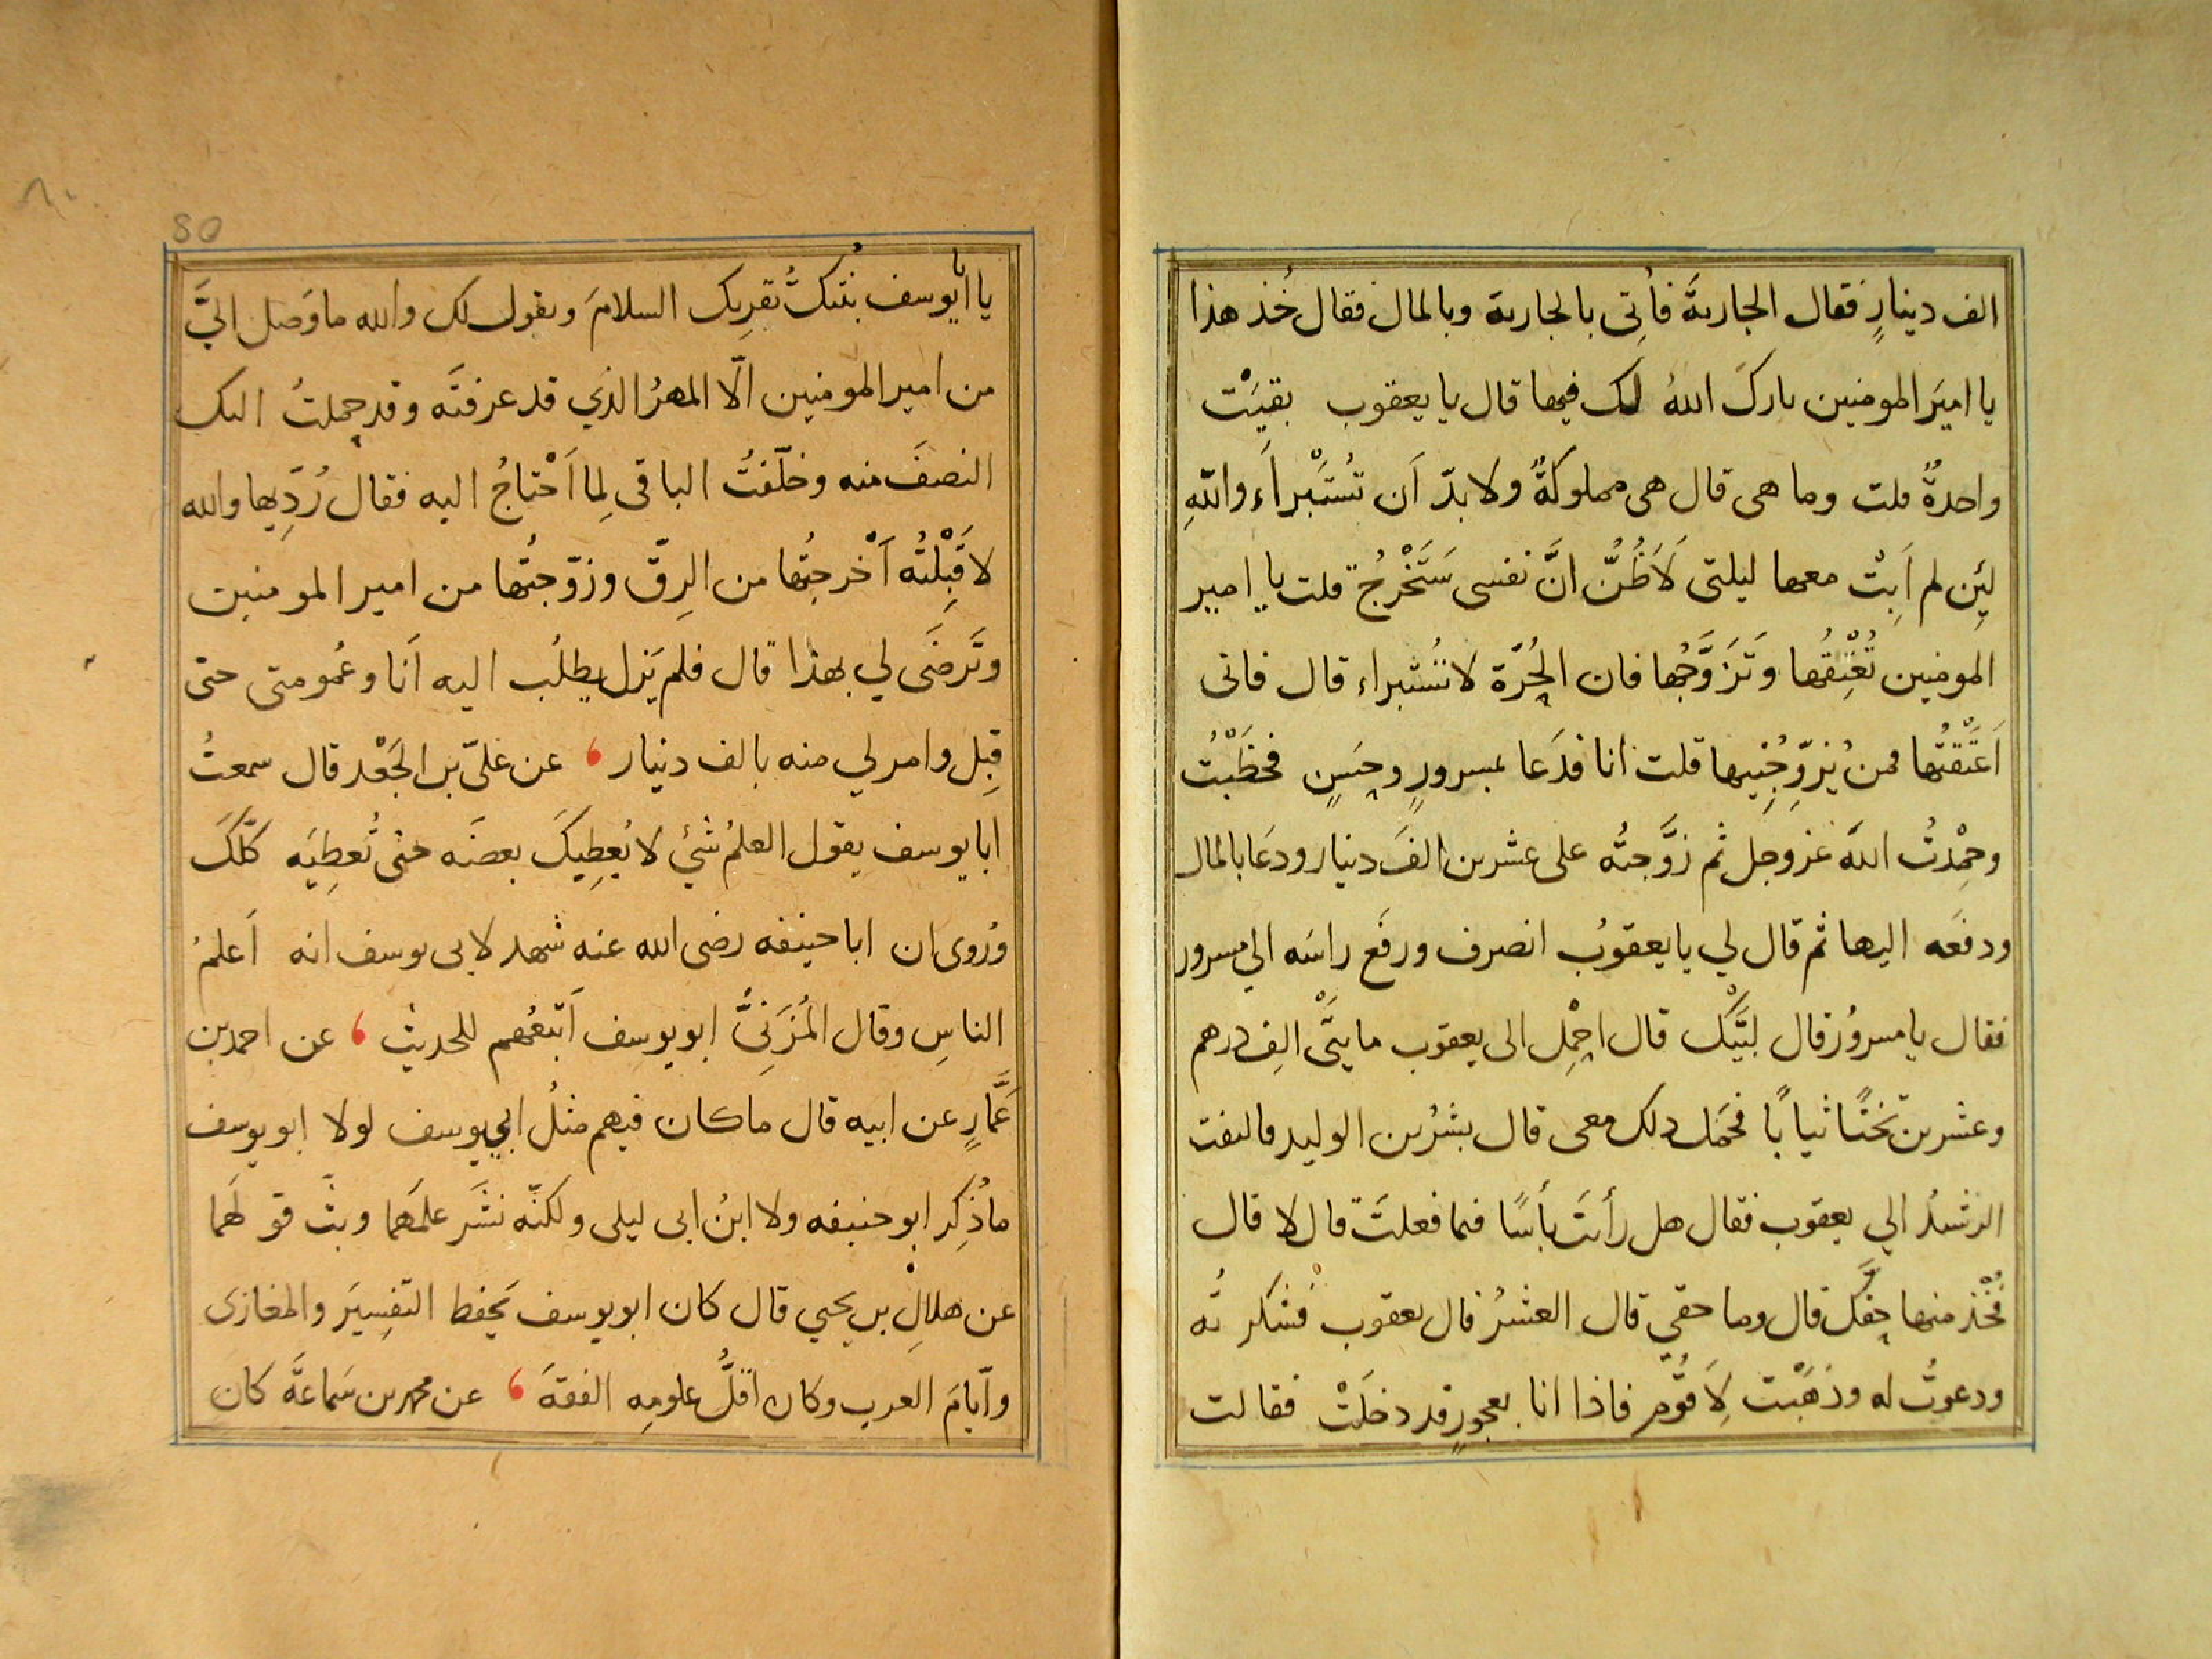 الف دينارٍ فقال الجاريةَ فأتِى بالجارية وبالمال فقال خُذ هذا
يا اميَر المومنين باركَ اللهُ لك فيها قال يا يعقوب بقيَتْ
واحدةٌ قلت وما هى قال هى مملوكةٌ ولا بدّ اَن تُسْتَبْراَء واللهِ
لئِن لم اَبِتْ معها ليلتى لَاَظُنُّ انَّ نفسى سَتَخْرُجُ قلت يا امير
المومنين تُعْتِقُها وَتَزَوَّجُها فان الحُرَّة لا تُستبراء قال فانى
اَعْتَقتُها فمن يُزوِّجُنِيها قلت أنا فدَعا بمسرورٍ وحسَينٍ فخطَبْتُ
وحَمِدْتُ اللهَ عزوجل ثم زوَّجتُه على عشرين الفَ دينار ودعَا بالمال
ودفعَه اليها ثم قال لي يا يعقوبُ انصرف ورفَع راسَه الي مسرور
فقال يا مسرورُ قال لبَّيْك قال احمِل الى يعقوب مايتَى الفِ درهم
وعشرين تختًا ثيابًا فحَمَل ذلك معى قال بشرُ بن الوليد فالتفت
الرشيدُ الي يعقوب فقال هل رأيتَ بأسًا فيما فعلتَ قال لا قال
فخُذْ منها حقَّك قال وما حقي قال العشرُ قال يعقوب فشكرتُه
ودعوتُ له وذهَبْت لِاَقُوم فاذا انا بعجوزٍ قد دخلَتْ فقالت
80
٨٠
يا ابا يوسف بُنتك تُقرِيك السلامَ ويقول لك والله ما وَصَل اليَّ
من امير المومنين الّا المهرُ الذي قد عرفتَه وقد حملتُ اليك
النصفَ منه وخلّفتُ الباقى لِما اَحْتاجُ اليه فقال رُدِّيها والله
لا قَبِلْتُه اَخْرجتُها من الرِقّ وزوّجتُها من امير المومنين
وتَرضَى لي بهذا قال فلم يَزل يطلُب اليه اَنا وعُمومتى حتى
قبِل وامر لي منه بالف دينار ، عن علىّ بن الجَعْد قال سمعتُ
ابا يوسف يقول العلمُ شئٌ لا يُعطِيكَ بعضَه حتى تُعطِيَه كلَّكَ
ورُوى ان ابا حنيفه رضى الله عنه شهد لابى يوسف انه اَعلمُ
الناسِ وقال المُزَنِىُّ ابو يوسف اَتبَعُهم للحديث ، عن احمد بن
عَمَّارٍ عن ابيه قال ما كان فيهم مثلُ ابي يوسف لولا ابو يوسف
ما ذُكِر ابو حنيفه ولا ابنُ ابى ليلى ولكنّه نشَر علمَهما وبثَّ قولهَما
عن هلالِ بن يحيي قال كان ابو يوسف يَحفط التفسِيَر والمغازى
واَيّامَ العرب وكان اَقَلُّ علومِه الفقهَ ، عن محمد بن سَماعةَ كان